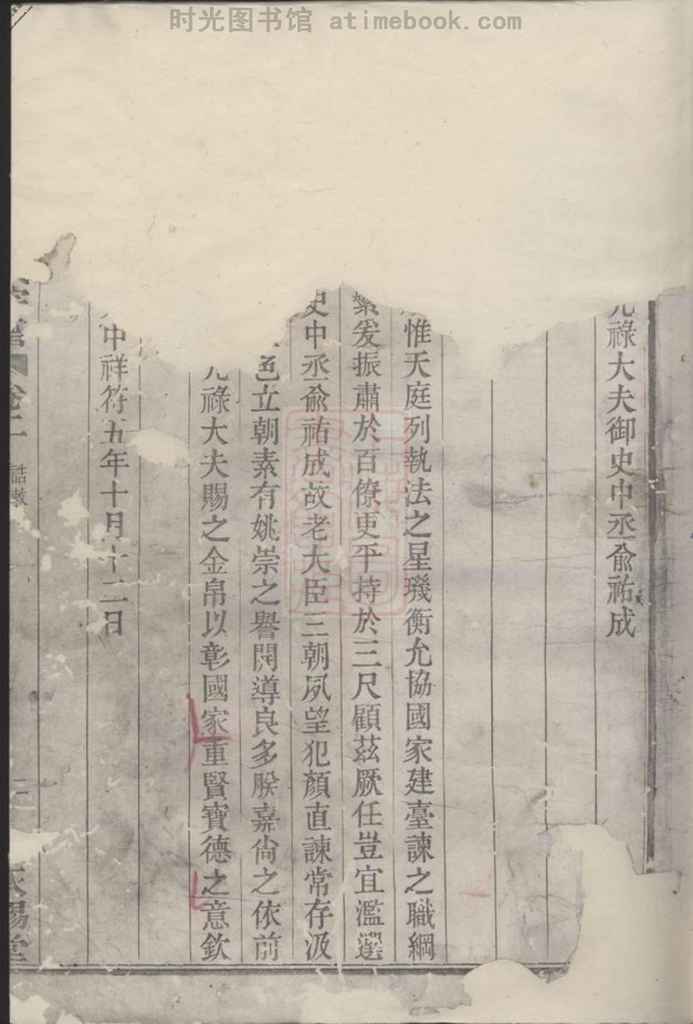 时光图书馆 atimebook.com
祿大夫御史中丞俞祐成
惟天庭列執法之星璣衡允協國家建臺諫之職綱
紫发振肅於百僚更平持於三尺顧茲厥任豈宜濫選
史中丞俞祐成故老大臣三朝夙望犯顏直諫常存汲
立朝素有姚崇之譽開導良多朕嘉尙之依前
祿大夫賜之金帛以彰國家重賢寶德之意欽
中祥符五年十月十二日
卷二
誥敕
二